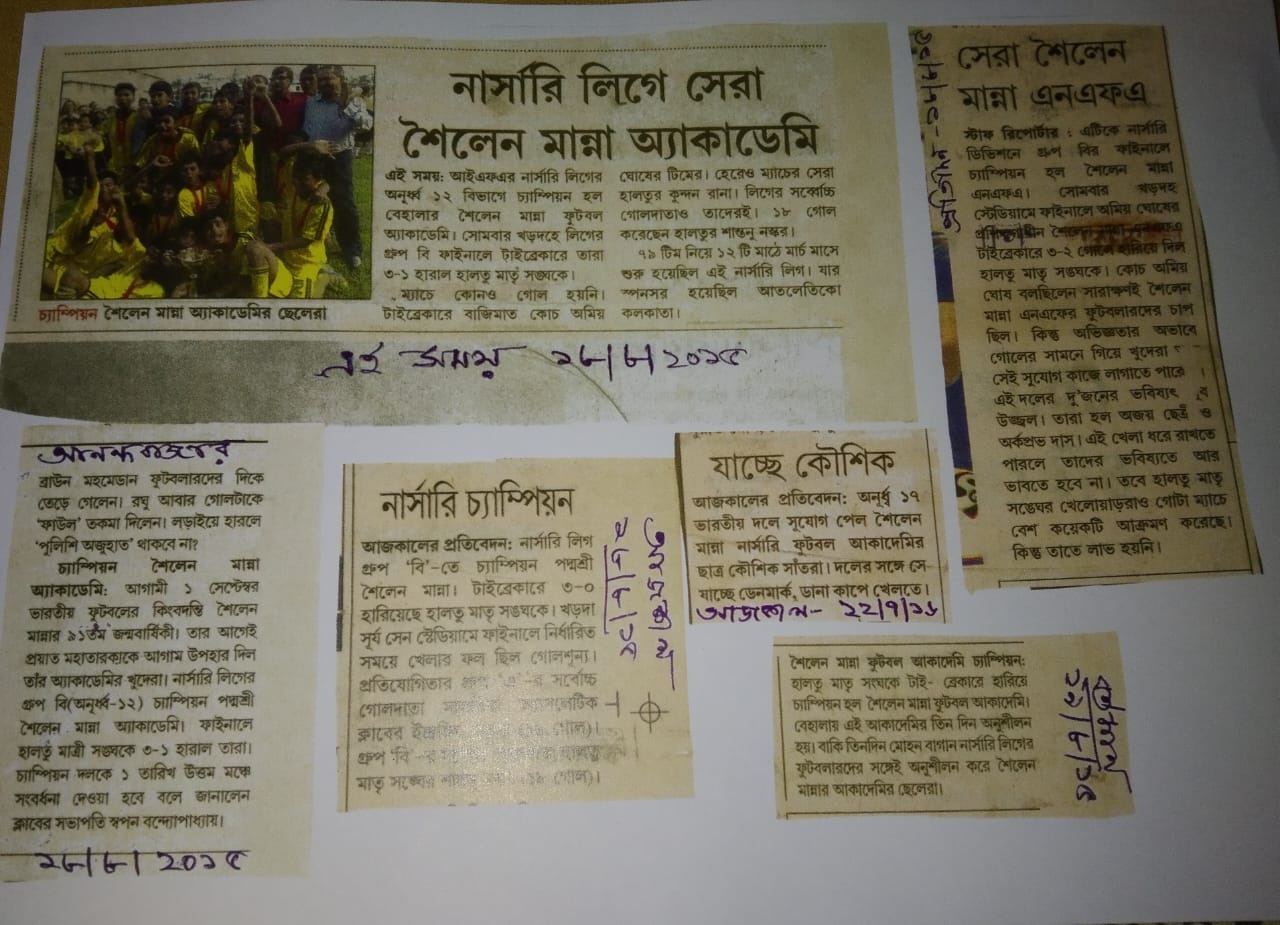 নার্সারি লিগে সেরা
শৈলেন মান্না অ্যাকাডেমি
এই সময়: আইএফএর নার্সারি লিগের
অনূর্ধ্ব ১২ বিভাগে চ্যাম্পিয়ন হল
বেহালার শৈলেন মান্না ফুটবল
অ্যাকাডেমি। সোমবার খড়দহে লিগের
গ্রুপ বি ফাইনালে টাইব্রেকারে তারা
৩-১ হারাল হালতু মাতৃ সঙ্ঘকে।
ম্যাচে কোনও গোল হয়নি।
টাইব্রেকারে বাজিমাত কোচ অমিয়
ঘোষের টিমের। হেরেও ম্যাচের সেরা
হালতুর কুন্দন রানা। লিগের সর্ব্বোচ্চ
গোলদাতাও তাদেরই। ১৮ গোল
করেছেন হালতুর শান্তনু নস্কর।
৭৯ টিম নিয়ে ১২ টি মাঠে মার্চ মাসে
শুরু হয়েছিল এই নার্সারি লিগ। যার
স্পনসর হয়েছিল আতলেতিকো
কলকাতা।
চ্যাম্পিয়ন শৈলেন মান্না অ্যাকাডেমির ছেলেরা
এই সময় ১৮/৮/২০১৫
সেরা শৈলেন
মান্না এনএফএ
স্টাফ রিপোর্টার : এটিকে নার্সারি
ডিভিশনে গ্রুপ বির ফাইনালে
চ্যাম্পিয়ন হল শৈলেন মান্না
এনএফএ। সোমবার খড়দহ
স্টেডিয়ামে ফাইনালে অমিয় ঘোষের
প্রশিক্ষণাধীন শৈলেন মান্না এনএফএ
টাইব্রেকারে ৩-২ গোলে হারিয়ে দিল
হালতু মাতৃ সঙ্ঘকে। কোচ অমিয়
ঘোষ বলছিলেন সারাক্ষণই শৈলেন
মান্না এনএফের ফুটবলারদের চাপ
ছিল। কিন্তু অভিজ্ঞতার অভাবে
গোলের সামনে গিয়ে খুদেরা
সেই সুযোগ কাজে লাগাতে পারে
এই দলের দু'জনের ভবিষ্যৎ
উজ্জ্বল। তারা হল অজয় ছেত্রী ও
অর্কপ্রভ দাস। এই খেলা ধরে রাখতে
পারলে তাদের ভবিষ্যতে আর
ভাবতে হবে না। তবে হালতু মাতৃ
সঙ্ঘের খেলোয়াড়রাও গোটা ম্যাচে
বেশ কয়েকটি আক্রমণ করেছে।
কিন্তু তাতে লাভ হয়নি।
আনন্দবাজার
ব্রাউন মহমেডান ফুটবলারদের দিকে
তেড়ে গেলেন। রঘু আবার গোলটাকে
'ফাউল' তকমা দিলেন। লড়াইয়ে হারলে
'পুলিশি অজুহাত' থাকবে না?
চ্যাম্পিয়ন শৈলেন মান্না
অ্যাকাডেমি: আগামী ১ সেপ্টেম্বর
ভারতীয় ফুটবলের কিংবদন্তি শৈলেন
মান্নার ৯১তম জন্মবার্ষিকী। তার আগেই
প্রয়াত মহাতারকাকে আগাম উপহার দিল
তাঁর অ্যাকাডেমির খুদেরা। নার্সারি লিগের
গ্রুপ বি(অনূর্ধ্ব-১২) চ্যাম্পিয়ন পদ্মশ্রী
শৈলেন মান্না অ্যাকাডেমি। ফাইনালে
হালতু মাত্রী সঙ্ঘকে ৩-১ হারাল তারা।
চ্যাম্পিয়ন দলকে ১ তারিখ উত্তম মঞ্চে
সংবর্ধনা দেওয়া হবে বলে জানালেন
ক্লাবের সভাপতি স্বপন বন্দ্যোপাধ্যায়।
১৮/৮/২০১৫
নার্সারি চ্যাম্পিয়ন
আজকালের প্রতিবেদন: নার্সারি লিগ
গ্রুপ 'বি'-তে চ্যাম্পিয়ন পদ্মশ্রী
শৈলেন মান্না। টাইব্রেকারে ৩-০
হারিয়েছে হালতু মাতৃ সঙ্ঘকে। খড়দা
সূর্য সেন স্টেডিয়ামে ফাইনালে নির্ধারিত
সময়ে খেলার ফল ছিল গোলশূন্য।
প্রতিযোগিতার গ্রুপ 'এ'-র সর্বোচ্চ
গোলদাতা
ক্লাবের গোল)।
গ্রুপ 'বি'
মাতৃ সঙ্ঘের গোল)।
যাচ্ছে কৌশিক
আজকালের প্রতিবেদন: অনূর্ধ্ব ১৭
ভারতীয় দলে সুযোগ পেল শৈলেন
মান্না নার্সারি ফুটবল আকাদেমির
ছাত্র কৌশিক সাঁতরা। দলের সঙ্গে সে
যাচ্ছে ডেনমার্ক, ডানা কাপে খেলতে।
আজকাল- ২২/৭/১৬
শৈলেন মান্না ফুটবল আকাদেমি চ্যাম্পিয়ন:
হালতু মাতৃ সংঘকে টাই- ব্রেকারে হারিয়ে
চ্যাম্পিয়ন হল শৈলেন মান্না ফুটবল আকাদেমি।
বেহালায় এই আকাদেমির তিন দিন অনুশীলন
হয়। বাকি তিনদিন মোহন বাগান নার্সারি লিগের
ফুটবলারদের সঙ্গেই অনুশীলন করে শৈলেন
মান্নার আকাদেমির ছেলেরা।